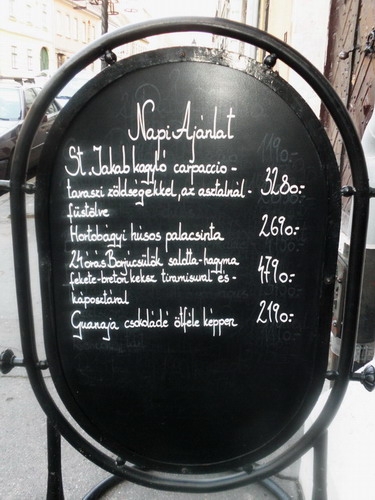 Napi Ajánlat
St. Jakab kagyló carpaccio -
tavaszi zöldségekkel, az asztalnál - 3280.-
füstölve
Hortobágyi húsos palacsinta 2690.-
24 órás Borjúcsülök salotta-hagyma
fekete-breton keksz tiramisuval és - 4790.-
káposztával
Guanaja csokoládé ötféle képpen 2190.-